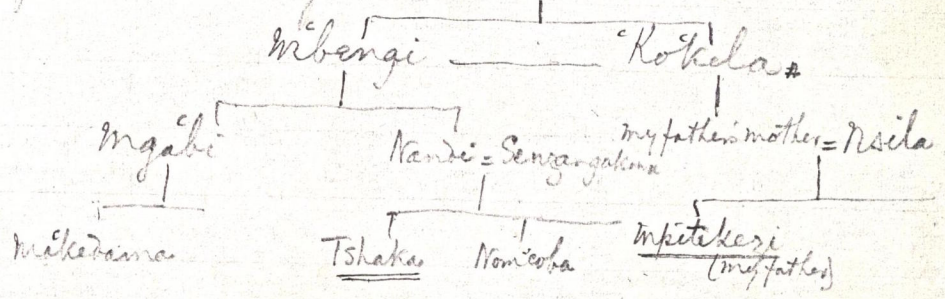 Mbengi Kokela
Mgabi Nandi = Senzangakona my father's mother = Nsila
Makedama Tshaka Nomcoba Mpitikezi
(my father)